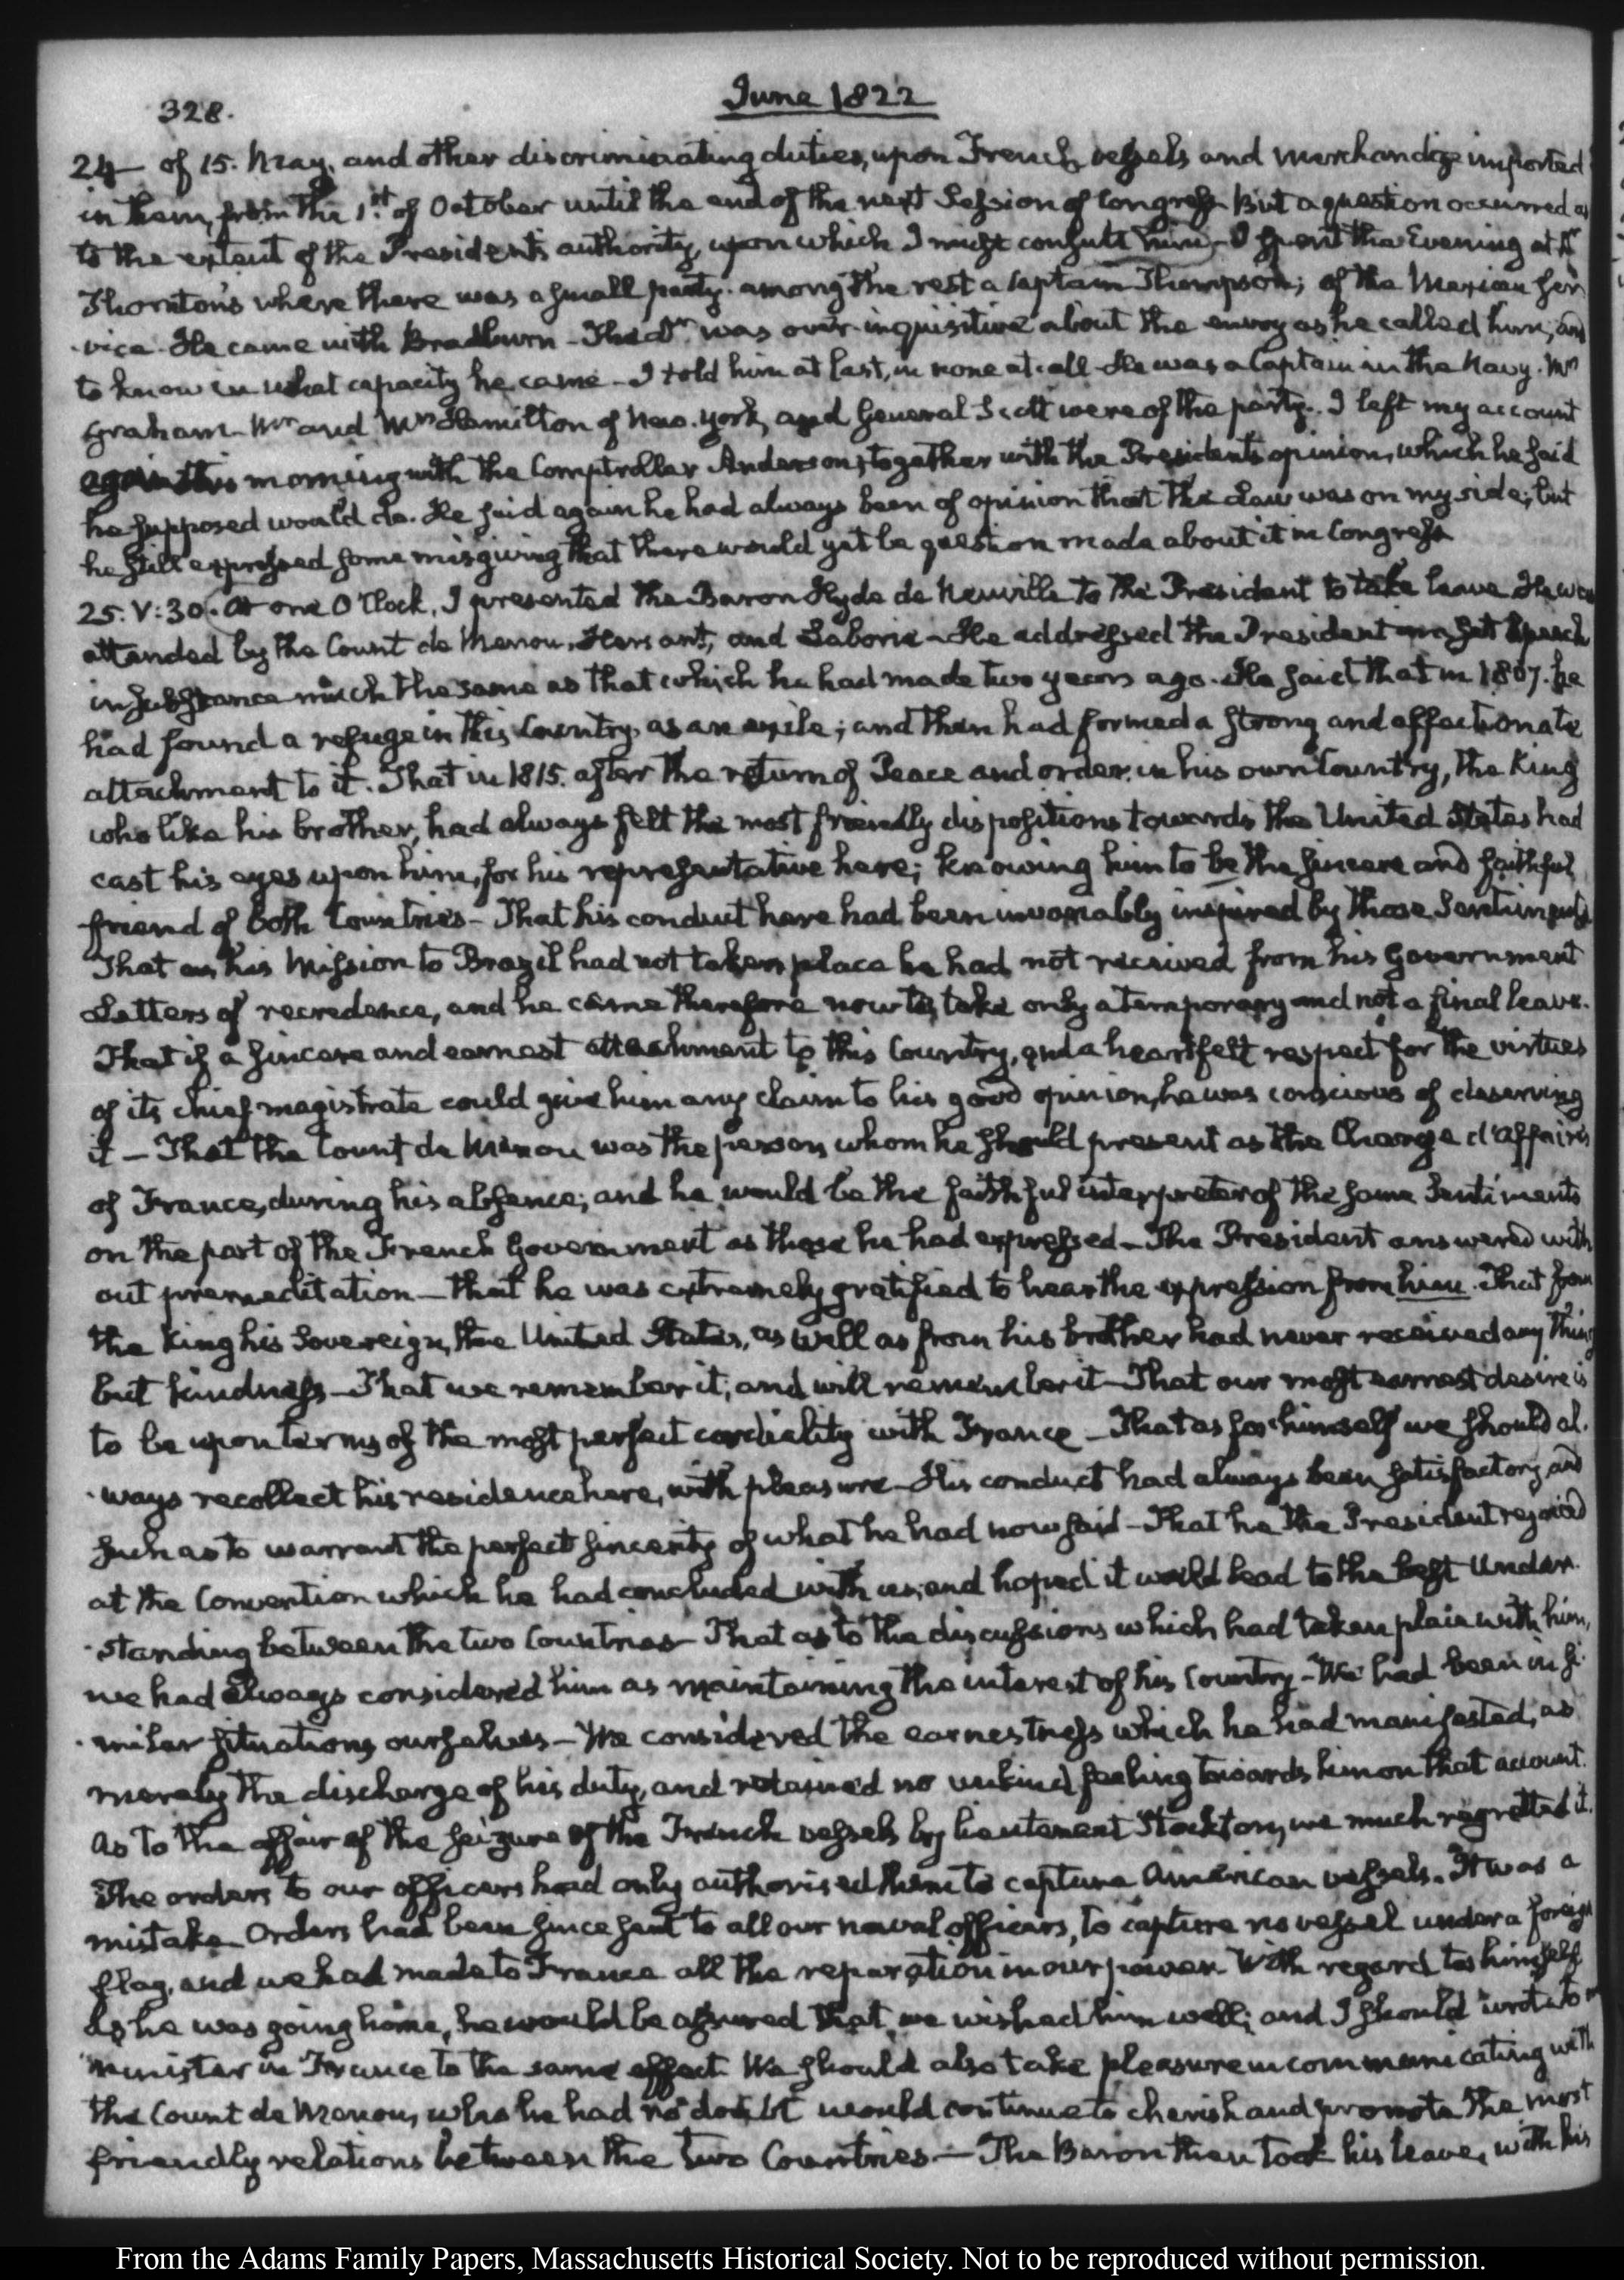 328.
June 1822
24 — of 15. May, and other discriminating duties, upon French vessels and merchandize imported
in them, from the 1st of October until the end of the next Session of Congress But a question occurred as
to the extent of the President's authority, upon which I must consult him — I spent the Evening at Dr
Thornton's where there was a small party. among the rest a Captain Thompson; of the Mexican ser
-vice. He came with Bradburn — The Dr was over-inquisitive about the envoy as he called him, and
to know in what capacity he came — I told him at last, in none at all — He was a Captain in the Navy. Mrs
Graham — Mr and Mrs Hamilton of New-York, and General Scott were of the party. I left my account
again this morning with the Comptroller Anderson, together with the President's opinion, which he said
he supposed would do. He said again he had always been of opinion that the Law was on my side; but
he still expressed some misgiving that there would yet be question made about it in Congress
25. V:30. At one O'Clock, I presented the Baron Hyde de Neuville to the President to take leave He was
attended by the Count de Menou, Hersant, and Laborie — He addressed the President in a set speech
in substance much the same as that which he had made two years ago. He said that in 1807. he
had found a refuge in this Country, as an exile; and then had formed a strong and affectionate
attachment to it. That in 1815. after the return of Peace and order, in his own Country, the King
who like his brother, had always felt the most friendly dispositions towards the United States had
cast his eyes upon him, for his representative here; knowing him to be the sincere and faithful
friend of both Countries — That his conduct here had been invariably inspired by those Sentiments
That as his Mission to Brazil had not taken place he had not received from his Government
Letters of recredence, and he came therefore now to take only a temporary and not a final leave.
That if a sincere and earnest attachment to this Country, and a heartfelt respect for the virtues
of its chief magistrate could give him any claim to his good opinion, he was conscious of deserving
it — That the Count de Menou was the person whom he should present as the Charge d'Affaires
of France, during his absence; and he would be the faithful interpreter of the same Sentiments
on the part of the French Government as those he had expressed — The President answered with
out premeditation — that he was extremely gratified to hear the expression from him. That from
the King his Sovereign, the United States, as well as from his brother had never received any thing
but kindness — That we remember it; and will remember it — That our most earnest desire is
to be upon terms of the most perfect cordiality with France — That as for himself we should al-
-ways recollect his residence here, with pleasure — His conduct had always been satisfactory and
such as to warrant the perfect sincerity of what he had now said — That he the President rejoiced
at the Convention which he had concluded with us; and hoped it would lead to the best Under-
-standing between the two Countries — That as to the discussions which had taken place with him,
we had always considered him as maintaining the interest of his Country — We had been in si-
-milar situations ourselves — We considered the earnestness which he had manifested, as
merely the discharge of his duty, and retained no unkind feeling towards him on that account.
As to the affair of the seizure of the French vessels by Lieutenant Stockton, we much regretted it.
The orders to our officers had only authorised them to capture American vessels. It was a
mistake Orders had been since sent to all our naval officers, to capture no vessel under a foreign
flag, and we had made to France all the reparation in our power. With regard to himself
as he was going home, he would be assured that we wished him well; and I should write to
minister in France to the same effect. We should also take pleasure in communicating with
the Count de Menou, who he had no doubt would continue to cherish and promote the most
friendly relations between the two Countries — The Baron then took his leave, with his
From the Adams Family Papers, Massachusetts Historical Society. Not to be reproduced without permission.